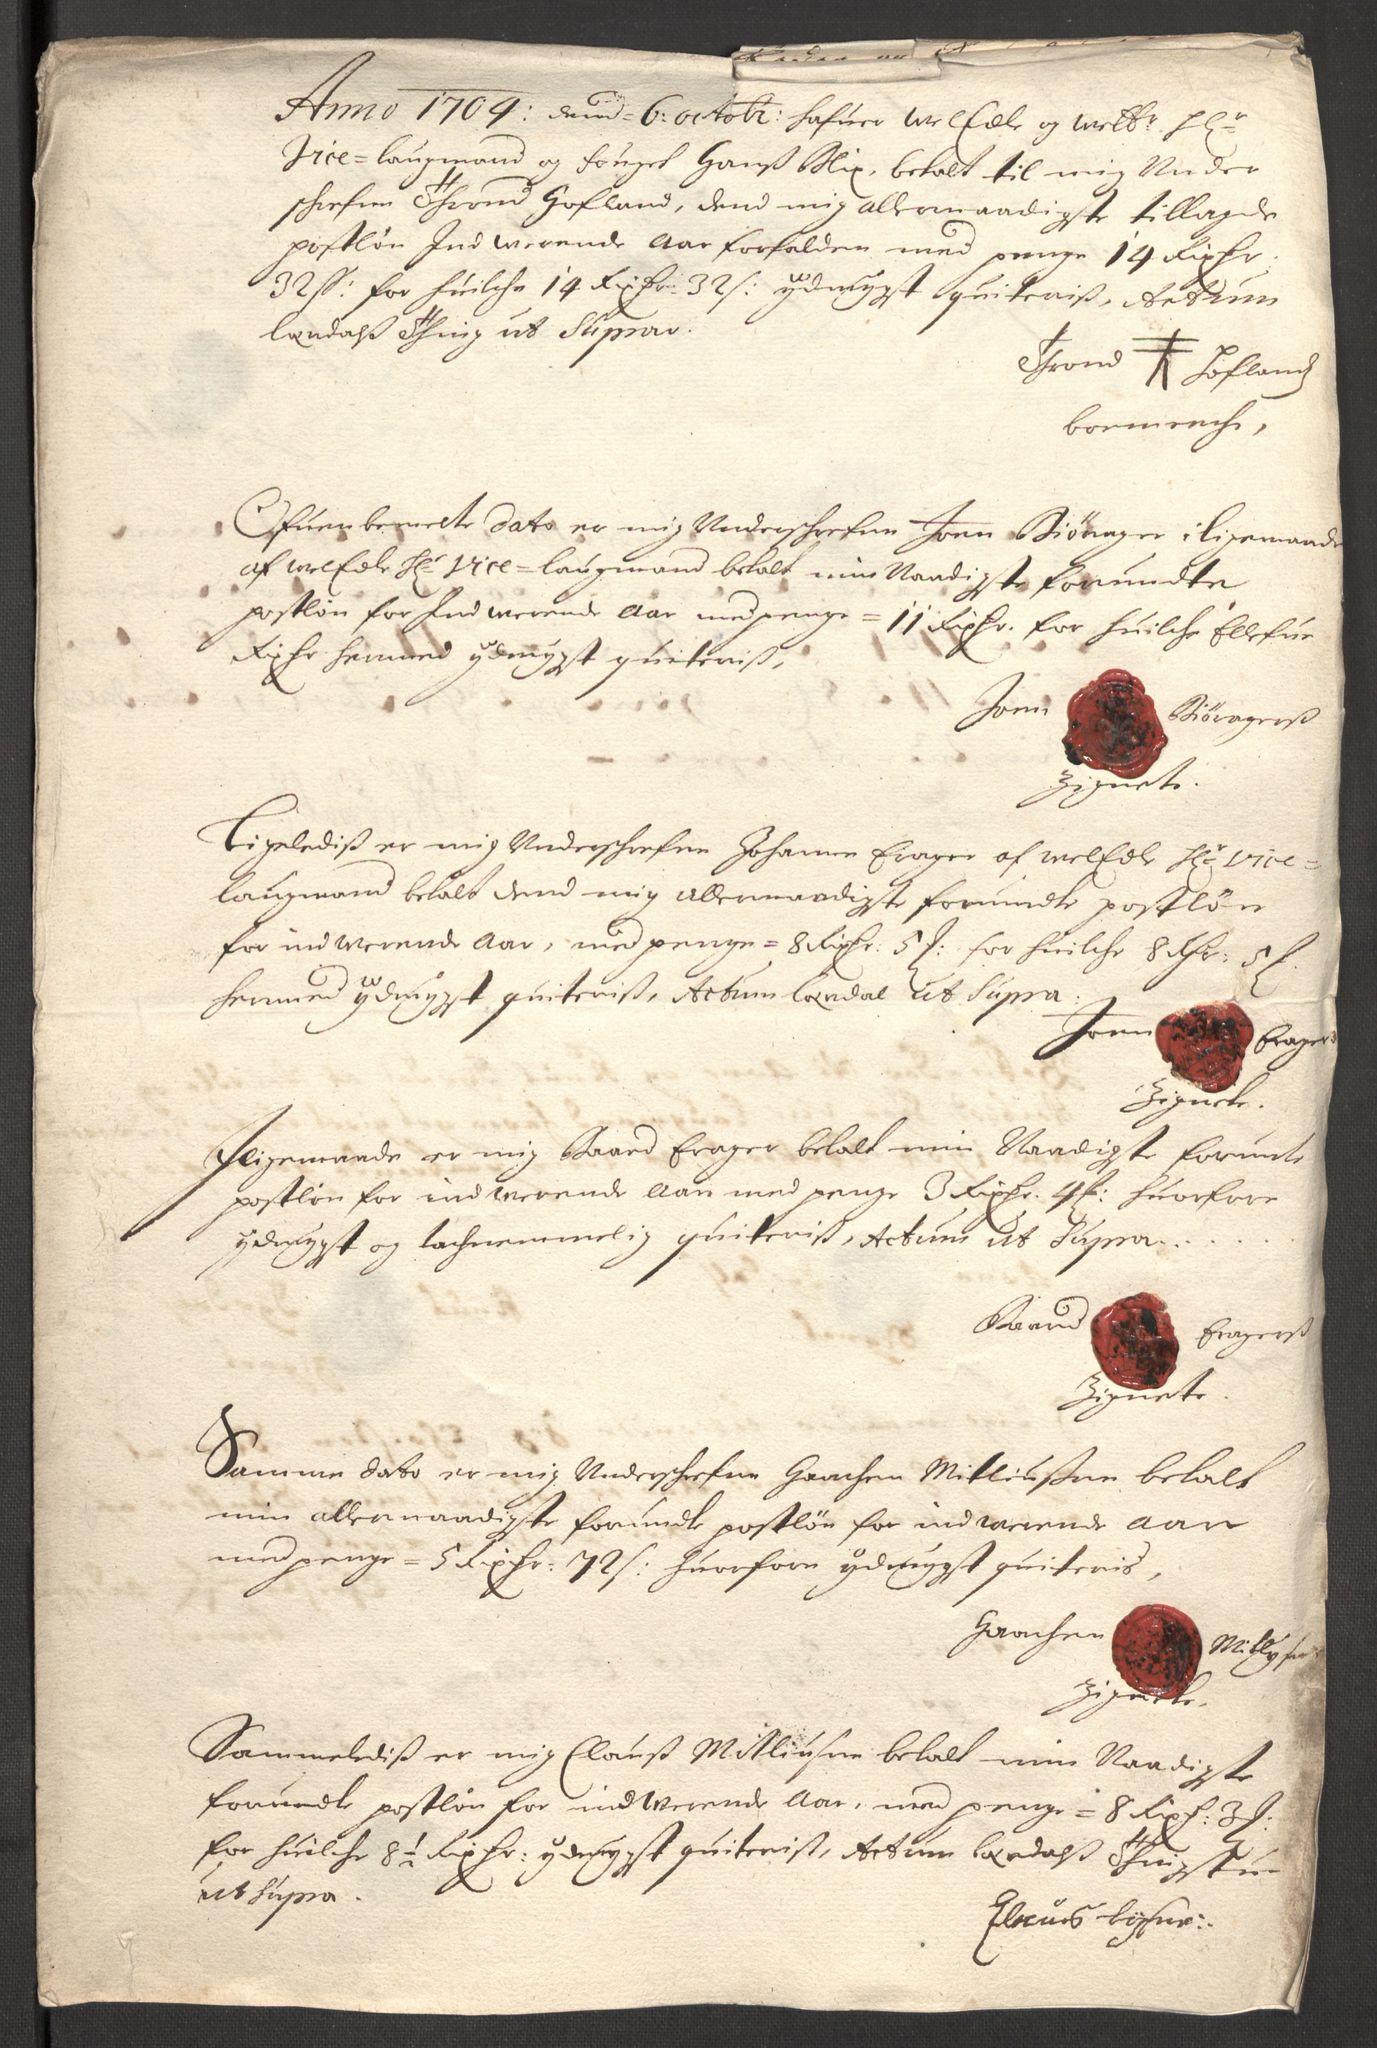 Anno 1704: dend = 6: octobr: hafuer Wel Edle og Welb.r Hr.
Vice = laugmand og fouget Hanß Blix, betalt til mig Under
schrefne Thrond Hofland, dend mig allernaadigste tillagde
postløn Ind werende Aar forfalden med penge 14 Rixdr.
32 ß: for huilche 14 Rixdr: 32 s: ÿdmygst quiteris, Actum
Lærdalß Thing ut Supra.
Thrond Hofland
boemerche,
Ofuenbemelte dato er mig Underschrefne Joen Biörager i ligemaade
af Wel Edle Hr. Vice = laugmand betalt min Naadigste forundte
postløn for Ind werende Aar med penge = 11 Rixdr. for huilche Ellefue
Rixdr hermed ÿdmygst quiteriß,
Joen Biöragerß
Zignete.
Ligelediß er mig Underschrefne Johannen Erager af Wel Edle Hr. Vice =
laugmand betalt dend mig allernaadigste forundte postlön
for ind werende Aar, med penge = 8 Rixdr: 5 s: for huilche 8 Rdr: 5 s.
hermed ÿdmygst quiteriß, Actum Lærdal ut Supra.
Joen Eragers
Zignete.
Iligemaade er mig Baard Erager betalt min Naadigste forunte
postløn for ind werende Aar med penge 3 Rixdr. 4 s: huorfore
ÿdmygst og tachnemmelig quiteriß, Actum ut Supra.....
Baard Eragerß
Zignete.
Samme dato er mig Underschrefne Haachen Mitliußne betalt
min allernaadigste forundte postløn for ind werende Aar
med penge = 5 Rixdr: 72 s: huorfore ÿdmygst quiteris,
Haachen Mitlysne
Zignete.
Sammelediß er mig Clauß Mitliusne betalt min Naadigste
forundte postløn for ind Werende Aar, med penge = 8 Rixdr: 3 s:
for huilche 8 1/2 Rixdr: ÿdmygst quiteriß, Actum Lærdalß Thingstue
ut Supra.
Claus